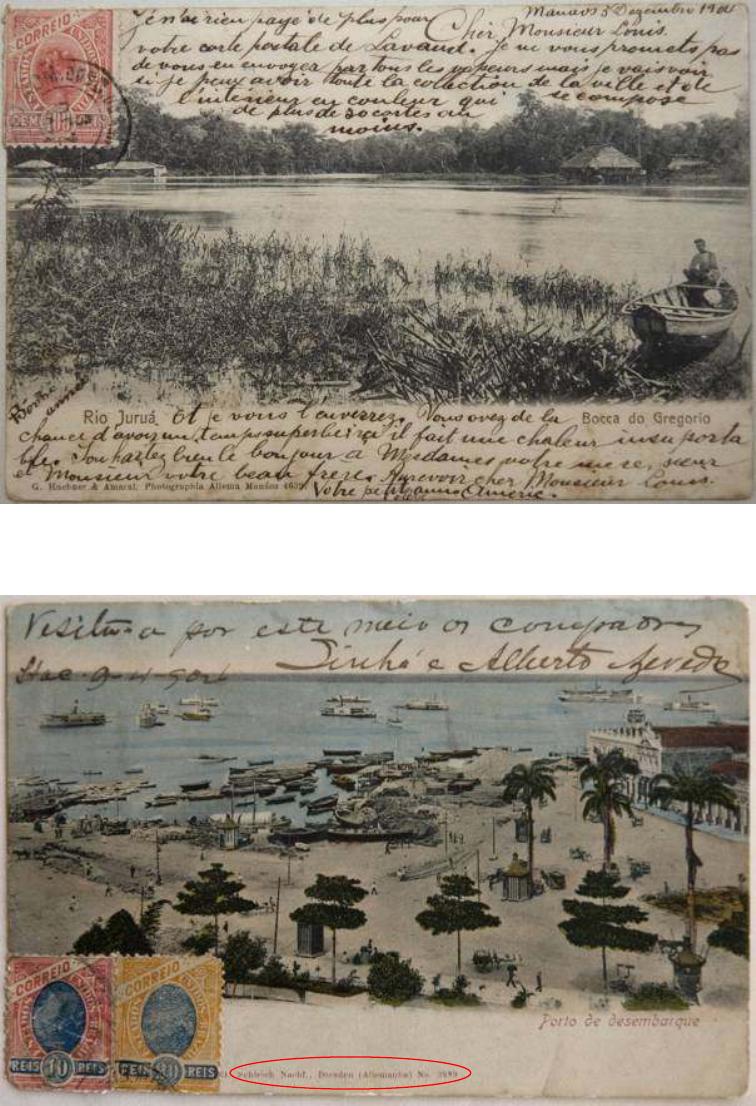 CORREIO
ESTADOS UNIDOS
CEM REIS
Manaos 5 Dezembro 190
Cher Monsieur Louis.
J'en ai rien payé de plus pour
votre carte postale de Lavaud. Je ne vous promets pas
de vous en envoyer par tous les vapeurs mais je vais voir
si je peux avoir toute la colection de la ville et de
l'interieur en couleur qui se compose
de plus de 30 cartes au
moins.
Bonne
année
Rio Juruá
Bocca do Gregorio
Et je vous l'enverrez. Vous avez de la
chance d'avoir un temps superbe ici il fait une chaleur insuporta
ble. Souhaitez bien le bonjour a Mesdames votre mere, sœur
et Monsieur votre beau frere. Aurevoir cher Monsieur Louis.
G. Huebner & Amaral. Photographia Allemã Manáos 4639.
Votre petit
Visita-o por este meio os compadres
Sinhá e Alberto Azevedo
9-4-904
Porto de desembarque
CORREIO
REIS 10 REIS
CORREIO
REIS 20 REIS
Schleich Nachf., Dresden (Allemanha) No.